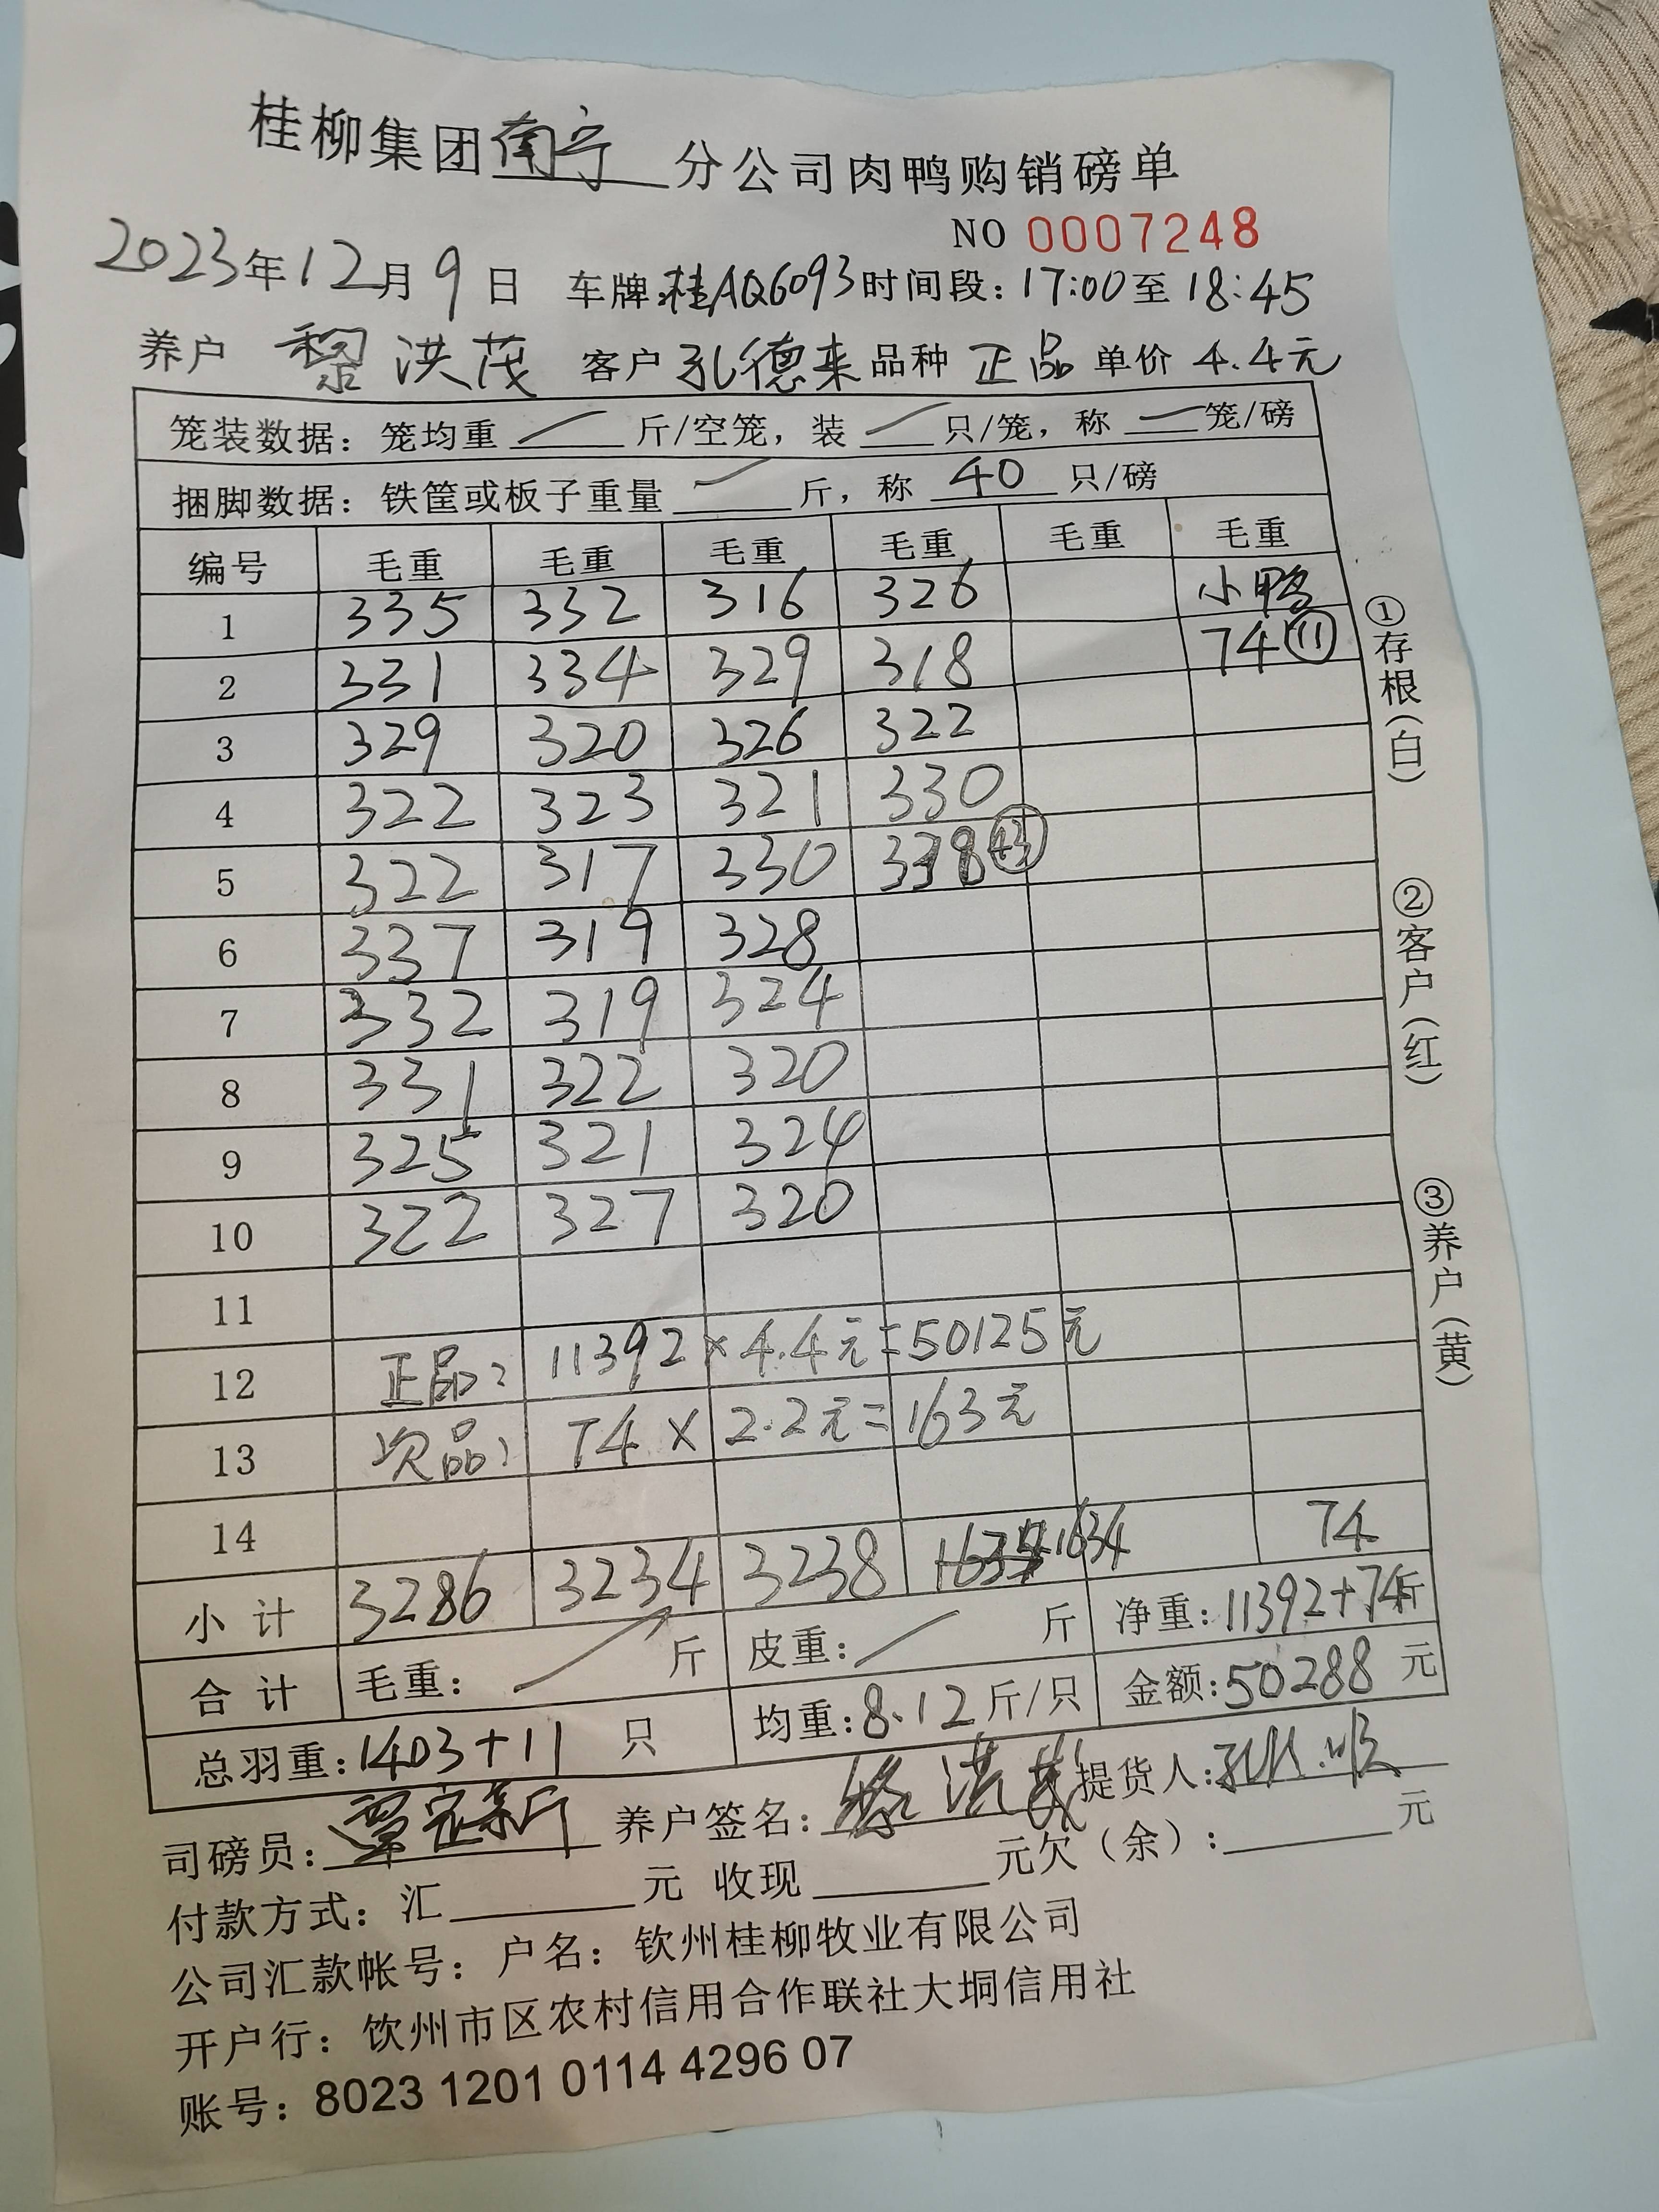 桂柳集团南宁分公司肉鸭购销磅单
NO 0007248
2023年12月9日 车牌:桂AQ6093时间段:17:00至18:45
养户 黎洪茂 客户 孔德来 品种 正品 单价 4.4元
笼装数据:笼均重 / 斤/空笼,装 / 只/笼,称 / 笼/磅
捆脚数据:铁筐或板子重量 / 斤,称 40 只/磅
编号 毛重 毛重 毛重 毛重 毛重 毛重
1 335 332 316 326 小鸭
2 331 334 329 318 74 ⑪
3 329 320 326 322
4 322 323 321 330
5 322 317 330 338 ㊸
6 337 319 328
7 332 319 324
8 331 322 320
9 325 321 324
10 322 327 320
11
12 正品: 11392×4.4元=50125元
13 次品: 74×2.2元=163元
14
小计 3286 3234 3238 1634 74
合计 毛重: / 斤 皮重: / 斤 净重:11392+74斤
总羽重:1403+11 只 均重:8.12斤/只 金额:50288元
司磅员:覃定新 养户签名:黎洪茂 提货人:
付款方式:汇 元 收现 元欠(余): 元
公司汇款帐号:户名:钦州桂柳牧业有限公司
开户行:钦州市区农村信用合作联社大垌信用社
账号:8023 1201 0114 4296 07
①存根(白)
②客户(红)
③养户(黄)